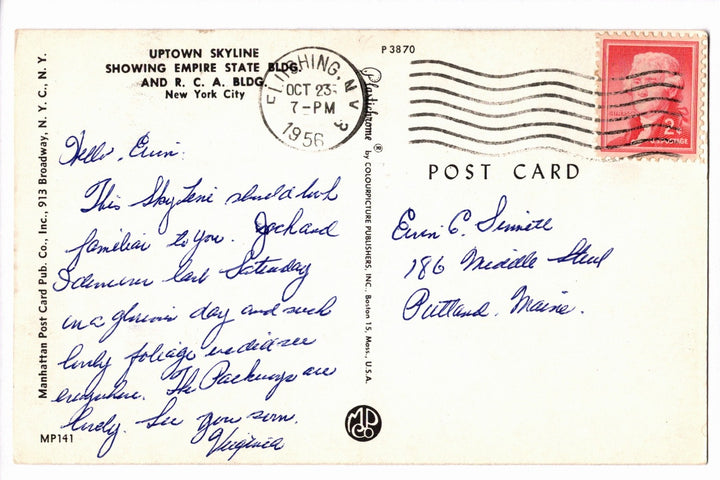 UPTOWN SKYLINE
SHOWING EMPIRE STATE BLDG.
AND R. C. A. BLDG.
New York City
FLUSHING, N.Y.
OCT 23
7-PM
1956
3
P3870
2¢
POSTAGE
Manhattan Post Card Pub. Co., Inc., 913 Broadway, N. Y. C., N. Y.
Plastichrome ® by COLOURPICTURE PUBLISHERS, INC., Boston 15, Mass., U.S.A.
POST CARD
Hello, Ervin:
This Skyline should look
familiar to you. Jack and
I drove last Saturday
in a glorious day and such
lovely foliage we did see
everywhere. The Parkways are
lovely. See you soon.
Virginia
Ervin C.
186 Middle Street
Portland, Maine.
MP141
MP
CO